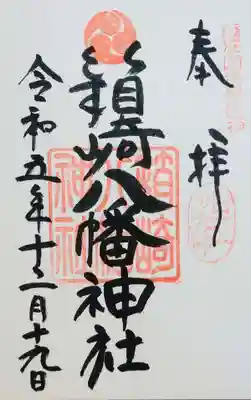 奉拝
箱崎八幡神社
箱崎
八幡
神社
令和五年十二月十九日